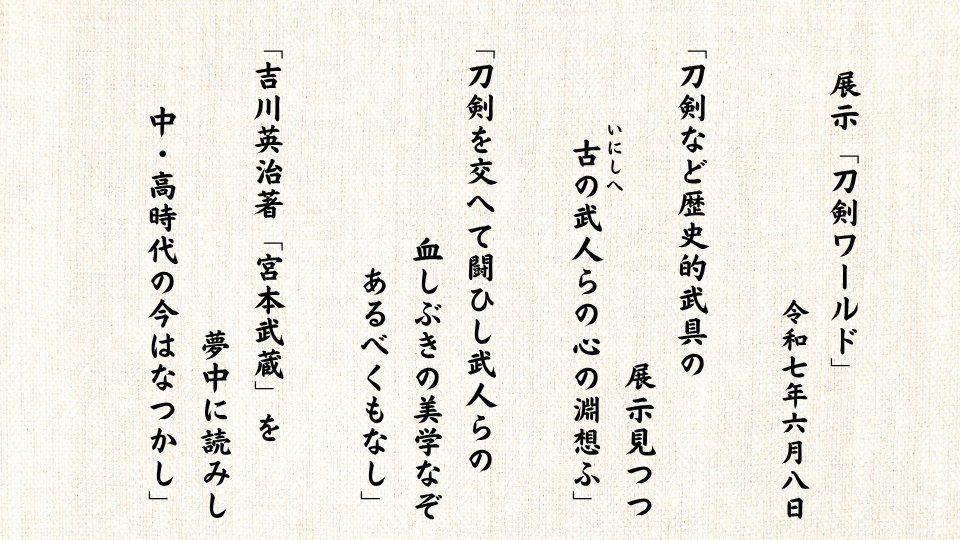 展示「刀剣ワールド」
令和七年六月八日
「刀剣など歴史的武具の
展示見つつ
いにしへ
古の武人らの心の淵想ふ」
「刀剣を交へて闘ひし武人らの
血しぶきの美学なぞ
あるべくもなし」
「吉川英治著「宮本武蔵」を
夢中に読みし
中・高時代の今はなつかし」